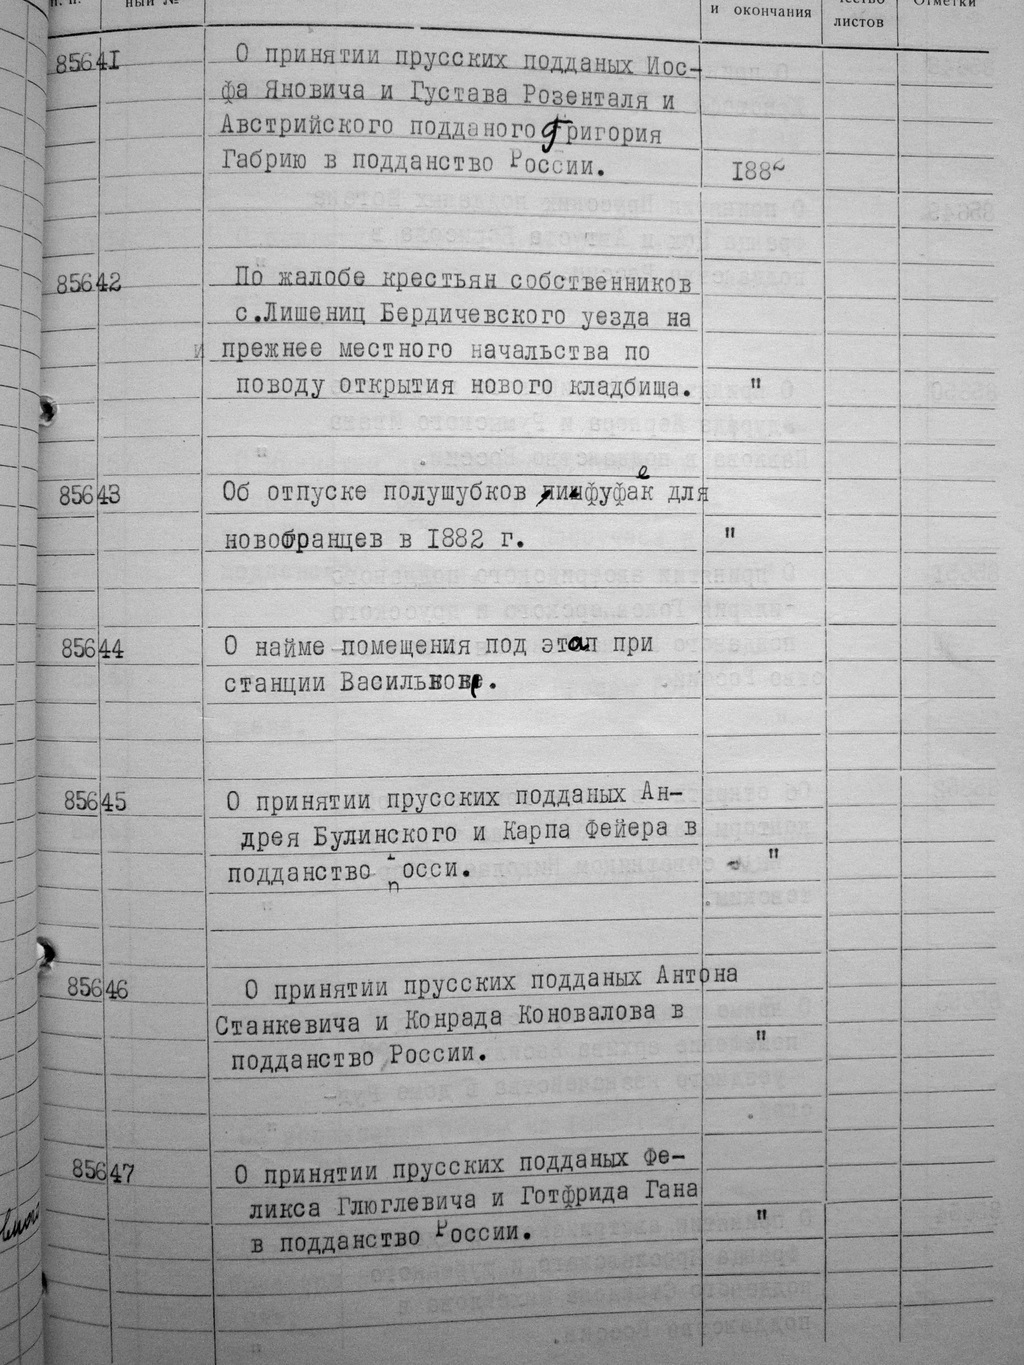 и окончания
листов
Отметки
85641 О принятии прусских подданых Иос-
фа Яновича и Густава Розенталя и
Австрийского подданого Григория
Габрию в подданство России. 1882
85642 По жалобе крестьян собственников
с.Лишениц Бердичевского уезда на
и прежнее местного начальства по
поводу открытия нового кладбища. "
85643 Об отпуске полушубков для
новобранцев в 1882 г. "
85644 О найме помещения под этап при
станции Васильков.
85645 О принятии прусских подданых Ан-
дрея Булинского и Карпа Фейера в "
подданство осси.
85646 О принятии прусских подданых Антона
Станкевича и Конрада Коновалова в
подданство России. "
85647 О принятии прусских подданых Фе-
ликса Глюглевича и Готфрида Гана
в подданство России. "